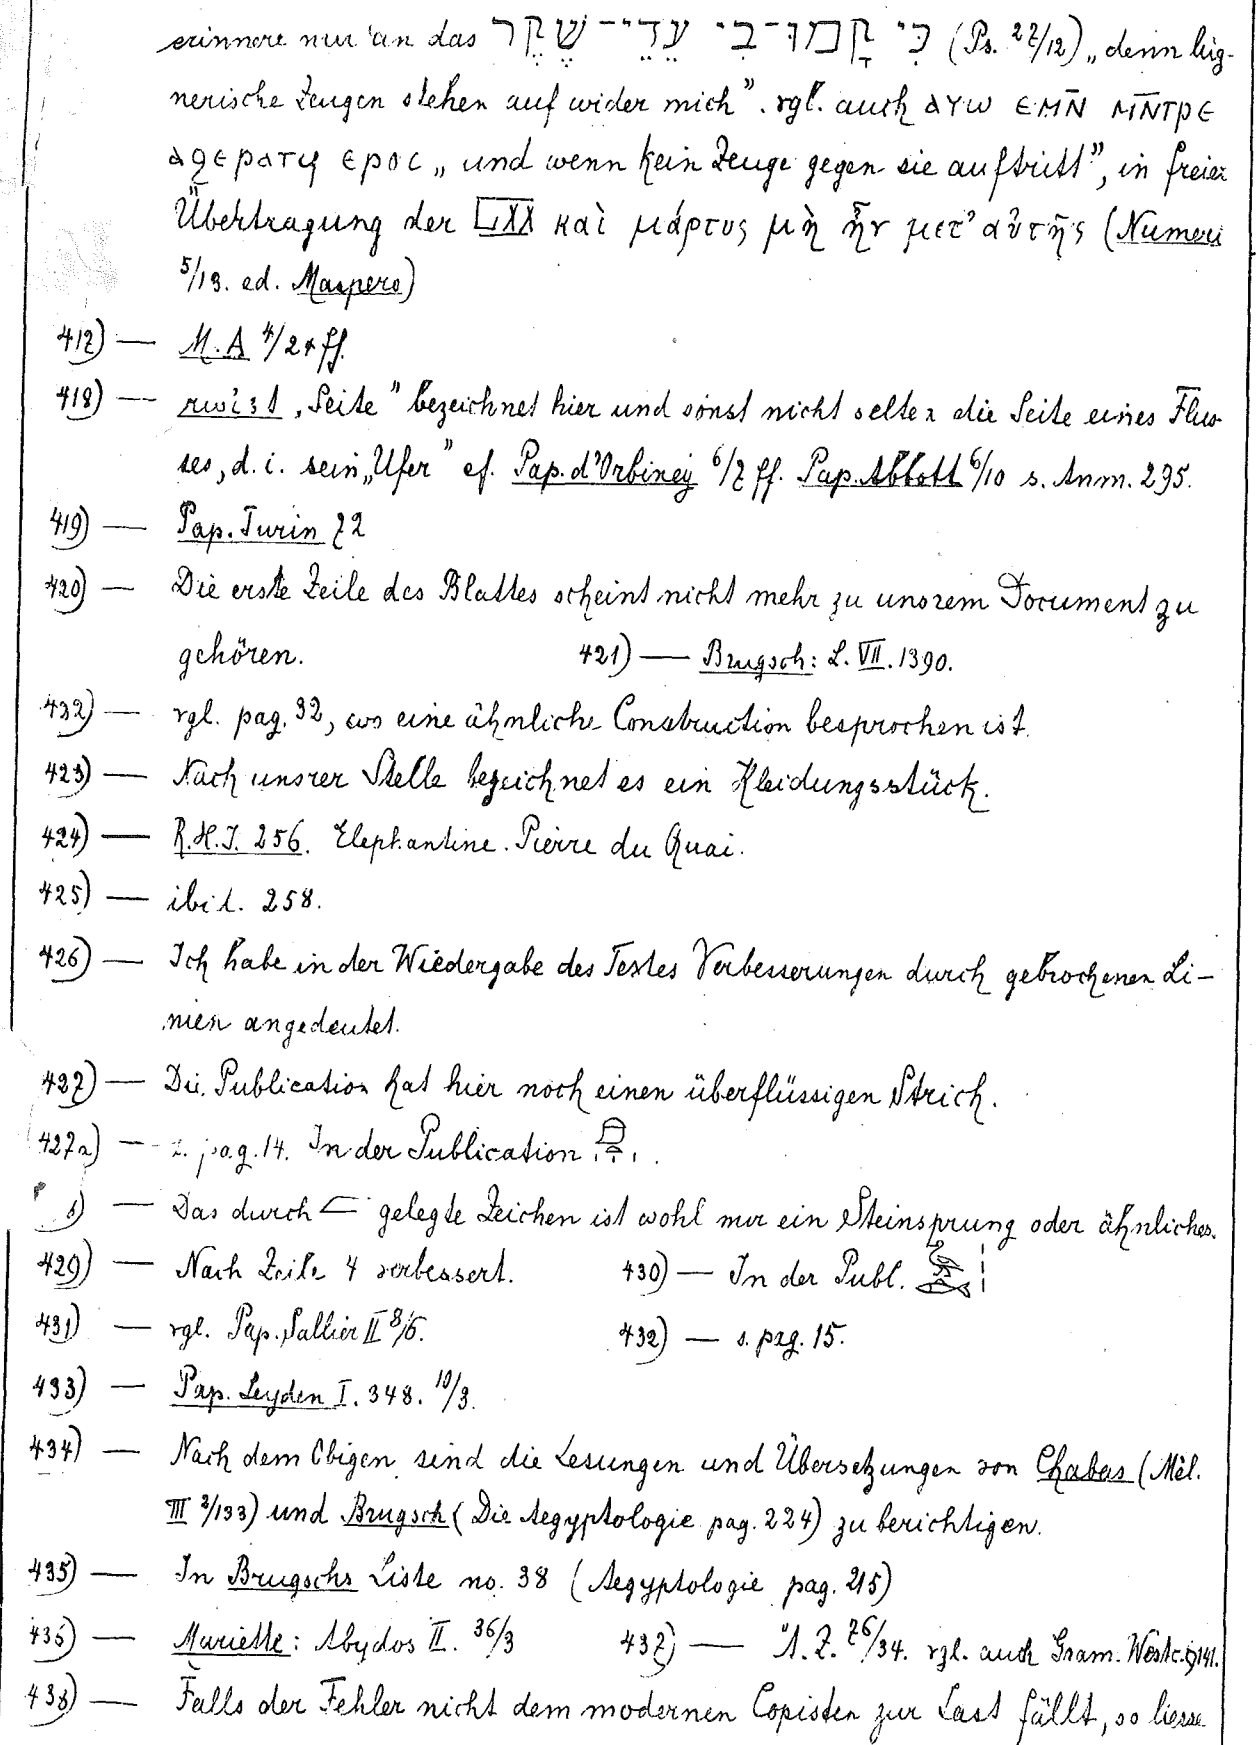 erinnere nur an das כִּי קָמוּ־בִי עֵדֵי־שֶׁקֶר (Ps. 27/12) „denn lüg-
nerische Zeugen stehen auf wider mich”. vgl. auch ⲁⲩⲱ ⲉⲙⲛ̄ ⲙⲛ̄ⲧⲣⲉ
ⲁϩⲉⲣⲁⲧϥ ⲉⲣⲟⲥ „und wenn kein Zeuge gegen sie auftritt”, in freier
Übertragung der LXX καὶ μάρτυς μὴ ἦν μετ’ αὐτῆς (Numeri
5/13. ed. Maspero)
417) — M. A 4/24 ff.
418) — rwi3t „Seite” bezeichnet hier und sonst nicht selten die Seite eines Flus-
ses, d. i. sein „Ufer” cf. Pap. d'Orbiney 6/7 ff. Pap. Abbott 6/10 s. Anm. 295.
419) — Pap. Turin 72
420) — Die erste Zeile des Blattes scheint nicht mehr zu unsrem Document zu
gehören. 421) — Brugsch: L. VII. 1390.
422) — vgl. pag. 32, wo eine ähnliche Construction besprochen ist.
423) — Nach unsrer Stelle bezeichnet es ein Kleidungsstück.
424) — R.H.J. 256. Elephantine. Pierre du Quai.
425) — ibid. 258.
426) — Ich habe in der Wiedergabe des Textes Verbesserungen durch gebrochenen Li-
nien angedeutet.
427) — Die Publication hat hier noch einen überflüssigen Strich.
427a) — s. pag. 14. In der Publication
b) — Das durch gelegte Zeichen ist wohl nur ein Steinsprung oder ähnliches.
429) — Nach Zeile 4 verbessert. 430) — In der Publ.
431) — vgl. Pap. Sallier II 8/6. 432) — s. pag. 15.
433) — Pap. Leyden I. 348. 10/3.
434) — Nach dem Obigen sind die Lesungen und Übersetzungen von Chabas (Mél.
III 2/133) und Brugsch (Die Aegyptologie pag. 224) zu berichtigen.
435) — In Brugschs Liste no. 38 (Aegyptologie pag. 215)
436) — Mariette: Abydos II. 36/3 437) — Ä. Z. 76/34. vgl. auch Gram. Westc. § 141.
438) — Falls der Fehler nicht dem modernen Copisten zur Last fällt, so liesse